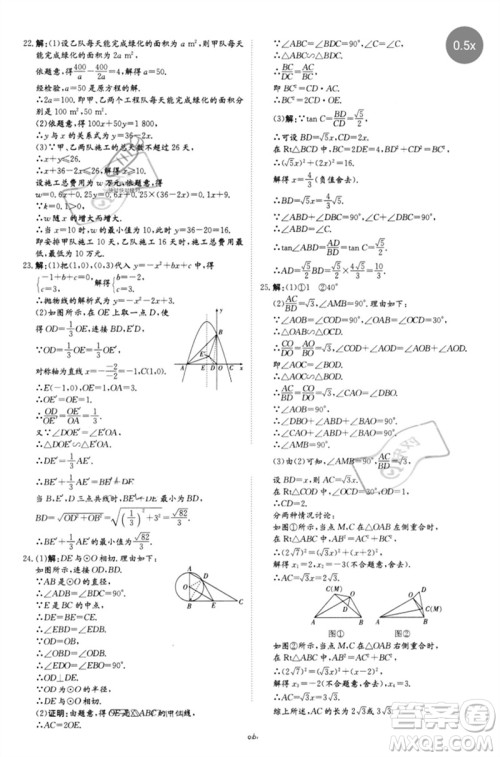 22.解:(1)设乙队每天能完成绿化的面积为a m²,则甲队每天能完成绿化的面积为2a m².
依题意,得400/a-400/2a=4,解得a=50.
经检验,a=50是方程的解.
∴2a=100(m²).即甲、乙两个工程队每天能完成绿化面积分别是100 m²,50 m².
(2)依题意,得100x+50y=1800.
∴y与x的关系式为y=36-2x.
∵甲、乙两队施工的总天数不超过26天,
∴x+y≤26.
∴x+36-2x≤26,解得x≥10.
设施工总费用为w万元,依题意,得
w=0.6x+0.25y=0.6x+0.25×(36-2x)=0.1x+9,
∵k=0.1>0,
∴w随x的增大而增大.
∴当x=10时,w最小为10万元,此时y=16.
即安排甲队施工10天、乙队施工16天时,施工总费用最低.
23.解:(1)把(1,0),(0,3)代入y=-x²+bx+c中,得
{-1+b+c=0, c=3. 解得{b=-2, c=3.
∴抛物线的解析式为y=-x²-2x+3.
(2)如图,在OE上取一点D,使得
OD=1/3OE,连接DE′,BD,
∵OD=1/3OE=1/3OE′,
对称轴为直线x=-(-2)/(-2)=-1,C(1,0).
∴E(-1,0),OE=1/3OA.
∴OE′=1/3OA.
∴OD/OE′=OE′/OA=1/3.
又∵∠DOE′=∠E′OA,
∴△DOE′∽△E′OA.
∴DE′=1/3AE′.
∴BE′+1/3AE′=BE′+DE′.
当B,E′,D三点共线时,BE′+DE′最小为BD,
BD=√(OD²+OB²)=√((1/3)²+3²)=√82/3,
∴BE′+1/3AE′的最小值为√82/3.
24.(1)解:DE与⊙O相切.理由如下:
如图所示,连接OD,BD.
∵AB为⊙O的直径,
∴∠ADB=∠BDC=90°.
∵E是BC的中点,
∴BE=CE=DE.
∴∠EBD=∠EDB.
∵OD=OB,
∴∠OBD=∠ODB.
∴∠EDO=∠EBO=90°.
∴OD⊥DE.
又∵OD为半径,
∴DE与⊙O相切.
(2)证明:由题意,得OE是△ABC的中位线,
∴AC=2OE.
∵∠ABC=∠BDC=90°,∠C=∠C,
∴△ABC∽△BDC.
∴BC/DC=AC/BC.
∴BC²=AC·CD.
即BC²=2CD·OE.
(3)解:∵tan C=BD/CD=√5/2,
∴可设BD=√5x,CD=2x.
∵在Rt△BCD中,BC=2DE=4,BD²+CD²=BC²,
∴(√5x)²+(2x)²=16.
解得x=4/3(负值舍去).
∴BD=√5x=4√5/3.
∵∠ABD=∠C,
∴tan∠ABD=AD/BD=√5/2.
∴AD=√5/2BD=√5/2×4√5/3=10/3.
25.解:(1)①1 ②40°
(2)AC/BD=√3,∠AMB=90°.理由如下:
∵∠AOB=∠COD=90°,∠OAB=∠OCD=30°,
∴CO/DO=AO/BO=√3.
∴∠COD+∠AOD=∠AOB+∠AOD,即∠AOC=∠BOD.
∴△AOC∽△BOD.
∴AC/BD=CO/DO=√3,∠CAO=∠DBO.
∵∠AOB=90°,
∴∠DBO+∠ABD+∠BAO=90°.
∴∠CAO+∠ABD+∠BAO=90°.
∴∠AMB=90°.
(3)由(2)可知,∠AMB=90°,AC/BD=√3,
∴设BD=x,则AC=√3x.
分两种情况讨论:
如图①所示,当点M,C在△OAB左侧重合时,
在Rt△ABC中,AB²=AC²+BC²,
∴(2√7)²=(√3x)²+(x+2)².
解得x=2或x=-3(不符合题意,舍去),
∴AC=√3x=2√3.
C(M) A D O B
A O B D C(M)
图① 图②
如图②所示,当点M,C在△OAB右侧重合时,
在Rt△ABC中,AB²=AC²+BC²,
∴(2√7)²=(√3x)²+(x-2)².
解得x=3或x=-2(不符合题意,舍去),
∴AC=√3x=3√3.
综上所述,AC的长为2√3或3√3.
0.5x